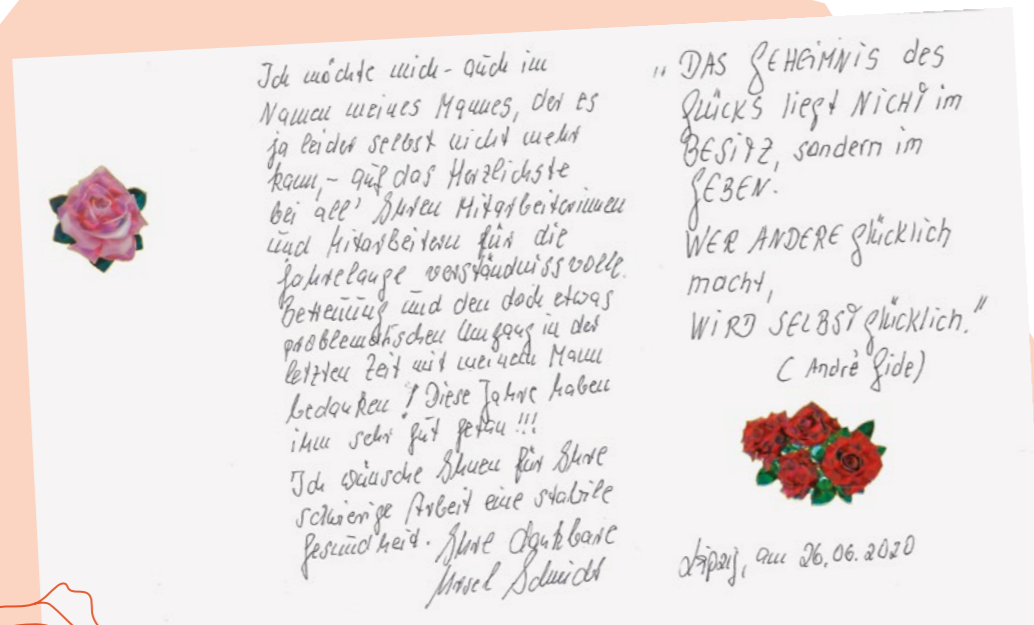 Ich möchte mich - auch im
Namen meines Mannes, der es
ja leider selbst nicht mehr
kann, - auf das Herzlichste
bei all' Ihren Mitarbeiterinnen
und Mitarbeitern für die
jahrelange verständnissvolle
Betreuung und den doch etwas
problematischen Umgang in der
letzten Zeit mit meinem Mann
bedanken! Diese Jahre haben
ihm sehr gut getan!!!
Ich wünsche Ihnen für Ihre
schwierige Arbeit eine stabile
Gesundheit. Ihre dankbare
Ursel Schmidt
"DAS GEHEiMNiS des
Glücks liegt NiCHT im
BESiTZ, sondern im
GEBEN.
WER ANDERE glücklich
macht,
WiRD SELBST glücklich."
(André Gide)
Leipzig, am 26.06.2020